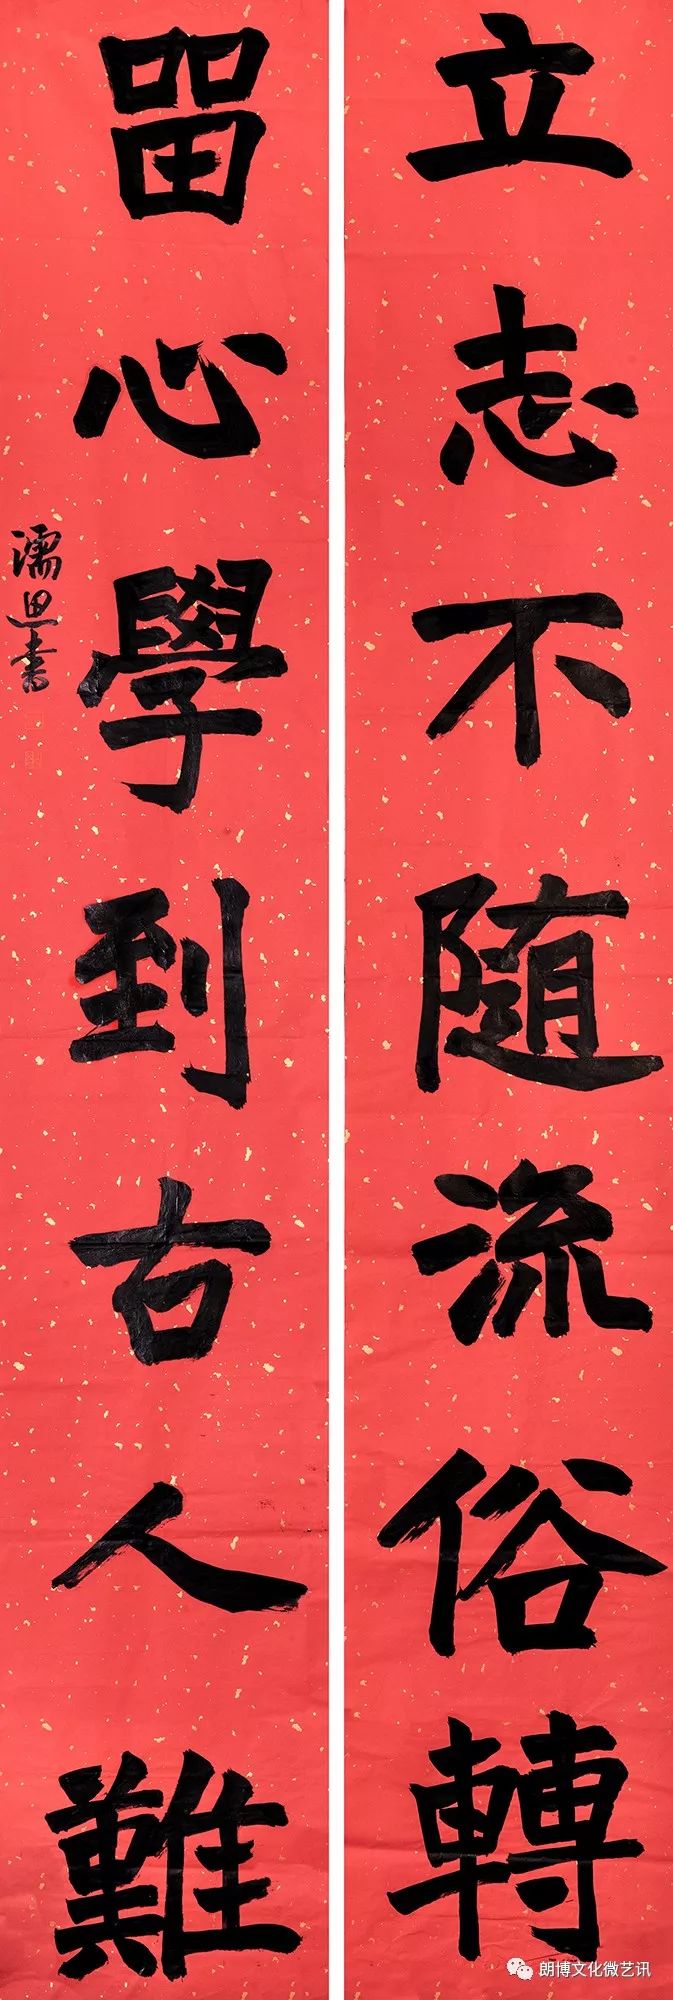 立志不随流俗轉
畱心學到古人難
濡思書
朗博文化微艺讯